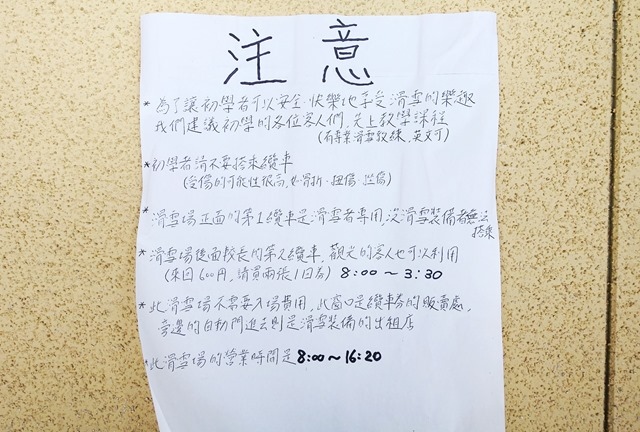 注意
*為了讓初學者可以安全、快樂地享受滑雪的樂趣
我們建議初學的各位客人們,先上教學課程
(有專業滑雪教練,英文可)
*初學者請不要搭乘纜車
(受傷的可能性很高,如骨折、扭傷、挫傷)
*滑雪場正面的第1纜車是滑雪者專用,沒滑雪裝備者無法
搭乘
*滑雪場後面較長的第2纜車,觀光的客人也可以利用
(來回600円,請買兩張1回券) 8:00~3:30
*此滑雪場不需要入場費用,此窗口是纜車券的販賣處,
旁邊的自動門進去則是滑雪裝備的出租店
*此滑雪場的營業時間是8:00~16:20